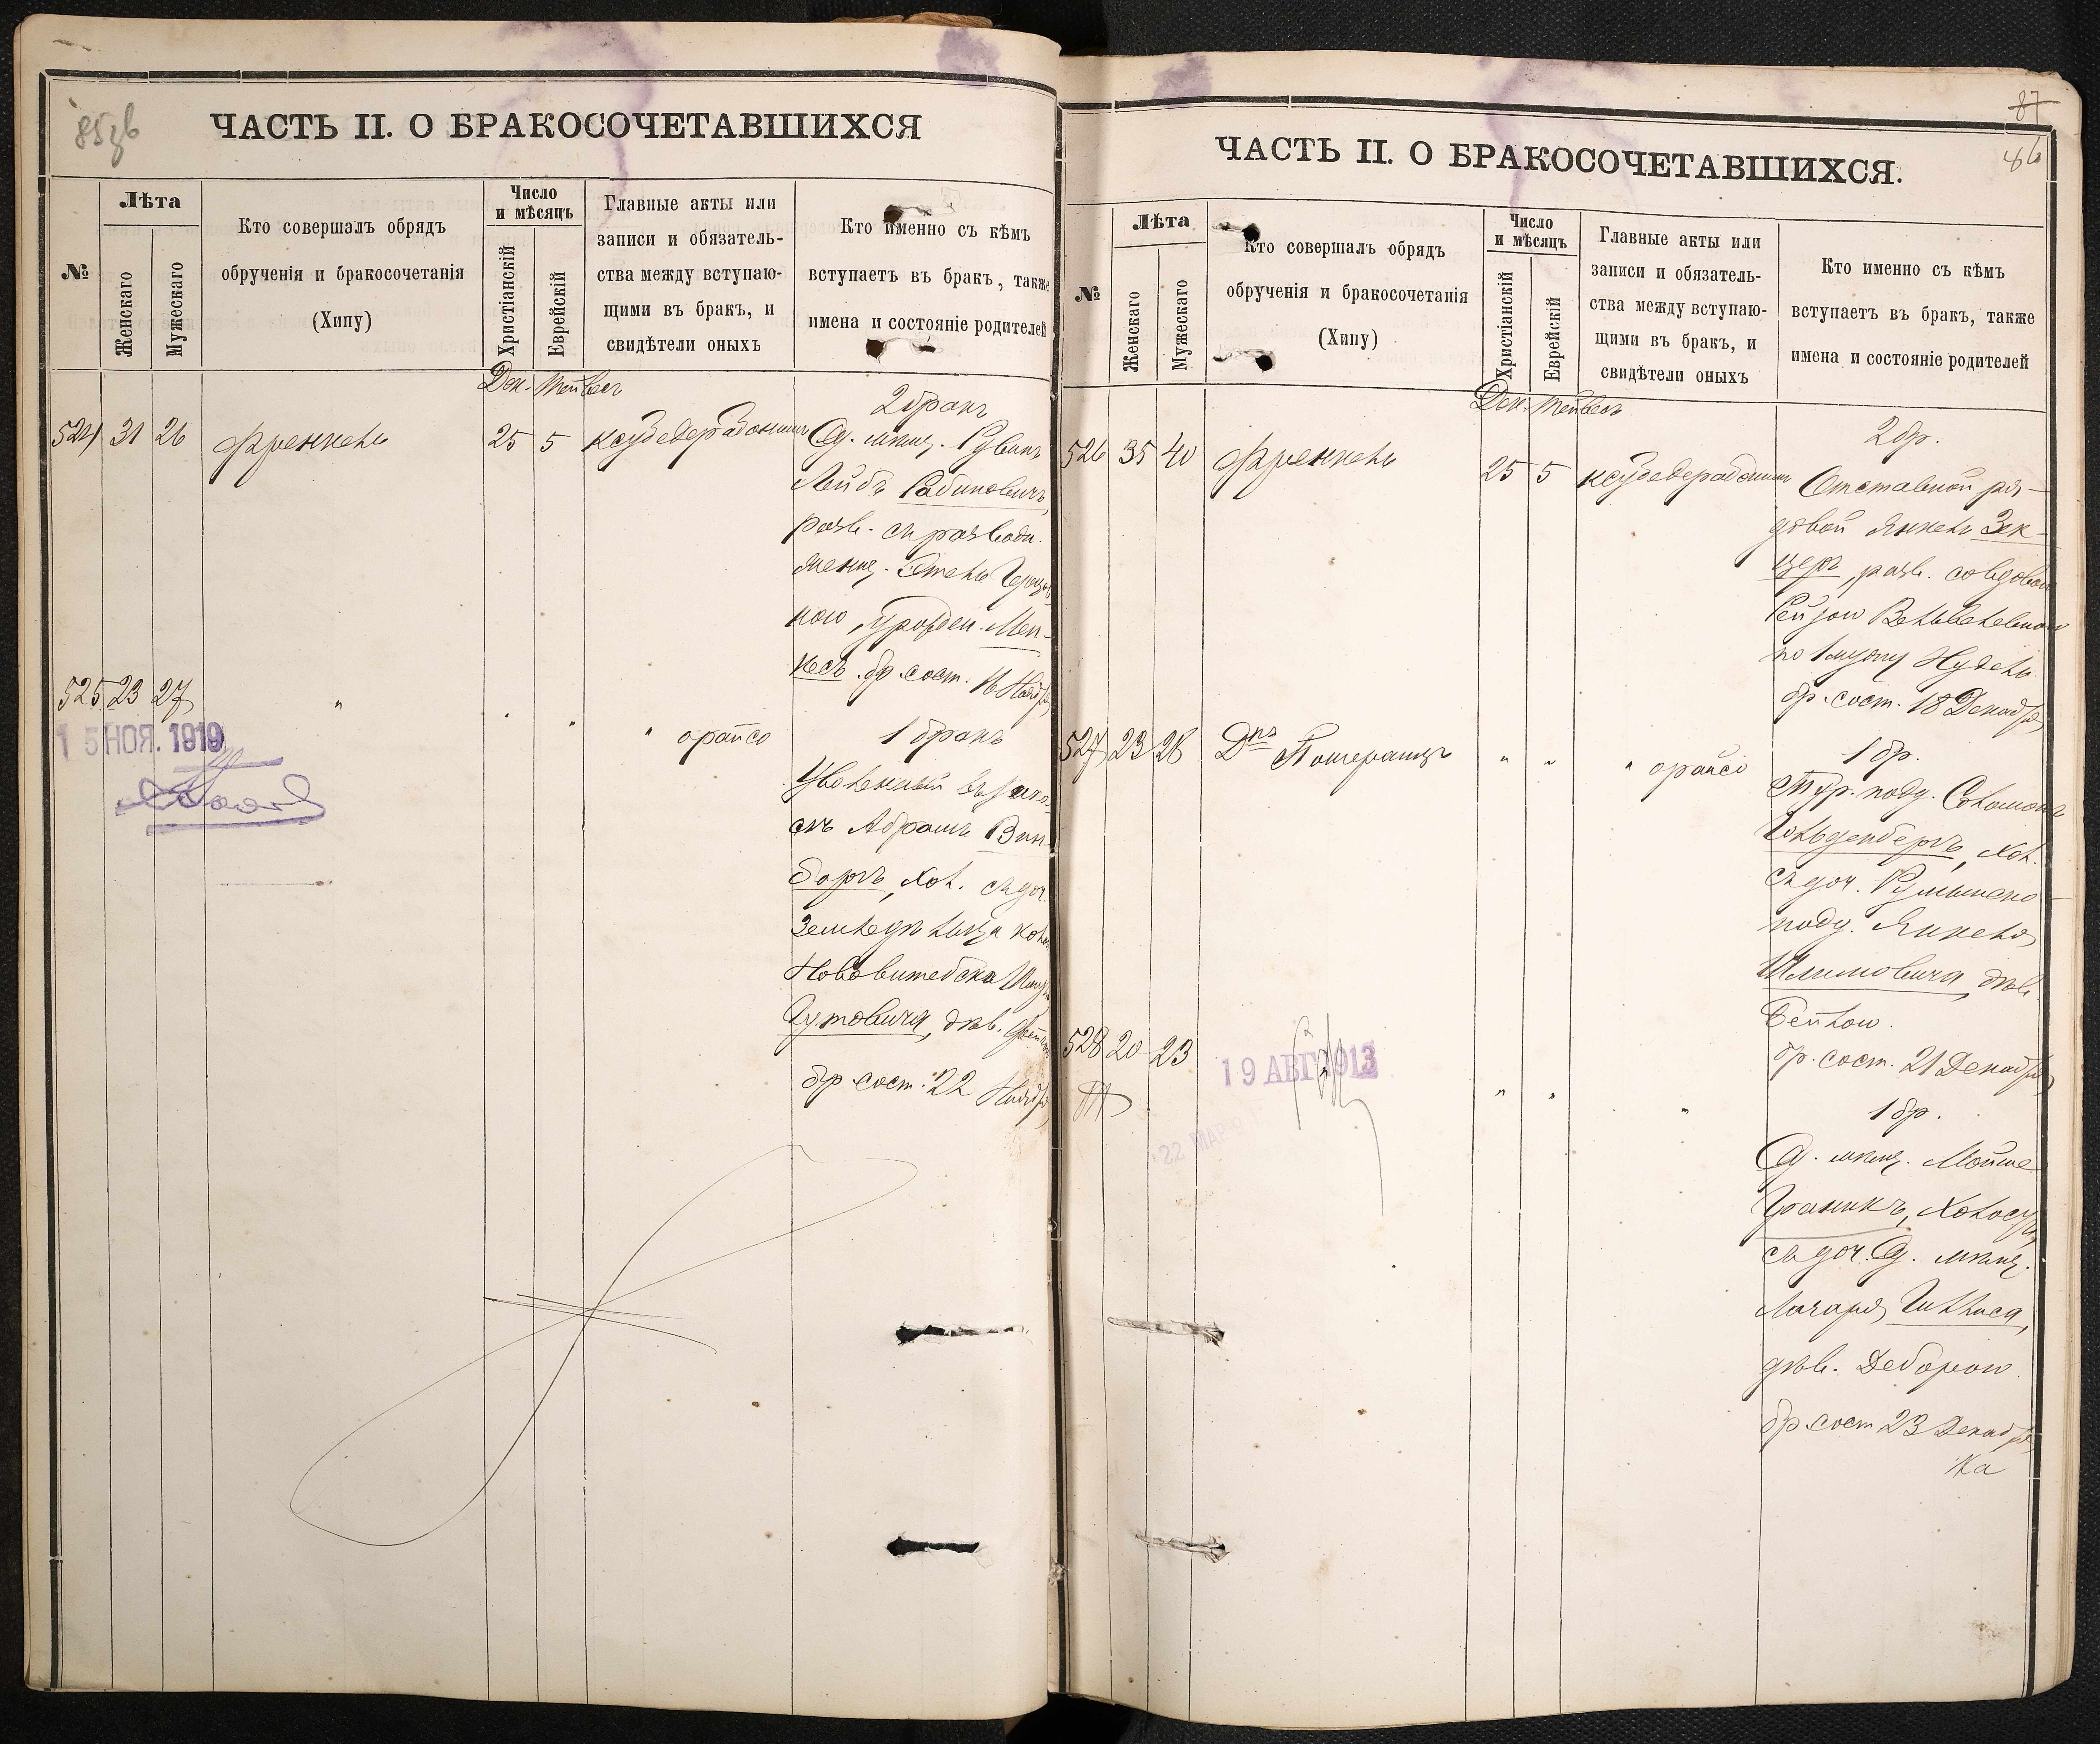 85зв
ЧАСТЬ II. О БРАКОСОЧЕТАВШИХСЯ
№
Лѣта
Женскаго
Мужескаго
Кто совершалъ обрядъ
обрученія и бракосочетанія
(Хипу)
Число
и мѣсяцъ
Христіанскій
Еврейскій
Главные акты или
записи и обязатель-
ства между вступаю-
щими въ бракъ, и
свидѣтели оныхъ
Кто именно съ кѣмъ
вступаетъ въ бракъ, также
имена и состояніе родителей
Дек. Тейвесъ
524 31 26 Френкель 25 5
2 бракъ
Од. мѣщ. Рувинъ
Лейбъ Рабиновичъ,
разв. съ разводн.
мѣнщ. Этель
кою, урожден. Мен-
кесъ. бр. сост. 16 Ноября
525 23 27 " " " " орайсо
15 НОЯ. 1919
1 бракъ
Уволенный въ запа-
съ Абрамъ Вин-
боргъ, хол. съ доч.
Земледѣльца кол.
Нововитебска
Гутовича, дѣв.
бр. сост. 22 Ноября
87
86
ЧАСТЬ II. О БРАКОСОЧЕТАВШИХСЯ.
№
Лѣта
Женскаго
Мужескаго
Кто совершалъ обрядъ
обрученія и бракосочетанія
(Хипу)
Число
и мѣсяцъ
Христіанскій
Еврейскій
Главные акты или
записи и обязатель-
ства между вступаю-
щими въ бракъ, и
свидѣтели оныхъ
Кто именно съ кѣмъ
вступаетъ въ бракъ, также
имена и состояніе родителей
Дек. Тейвесъ
526 35 40 Френкель 25 5
2 бр.
Отставной ря-
довой Янкель Зек-
церъ, разв. со вдовою
Рейзою Вольвелевною
по 1 мужу Нудель
бр. сост. 18 Декабря
527 23 28 Дръ Померанцъ " " " орайсо
1 бр.
Тур. подд. Соломонъ
Гольденбергъ, хол.
съ доч. Румынско
подд. Янкеля
Шлимовича, дѣв.
Бейлою.
бр. сост. 21 Декабря
528 20 23 " " "
19 АВГ 1913
22 МАР
1 бр.
Од. мѣщ. Мойше
Граникъ, холост,
съ доч. Од. мѣщ.
Лазаря Гиллиса,
дѣв. Деборою.
бр. сост 23 Декабря